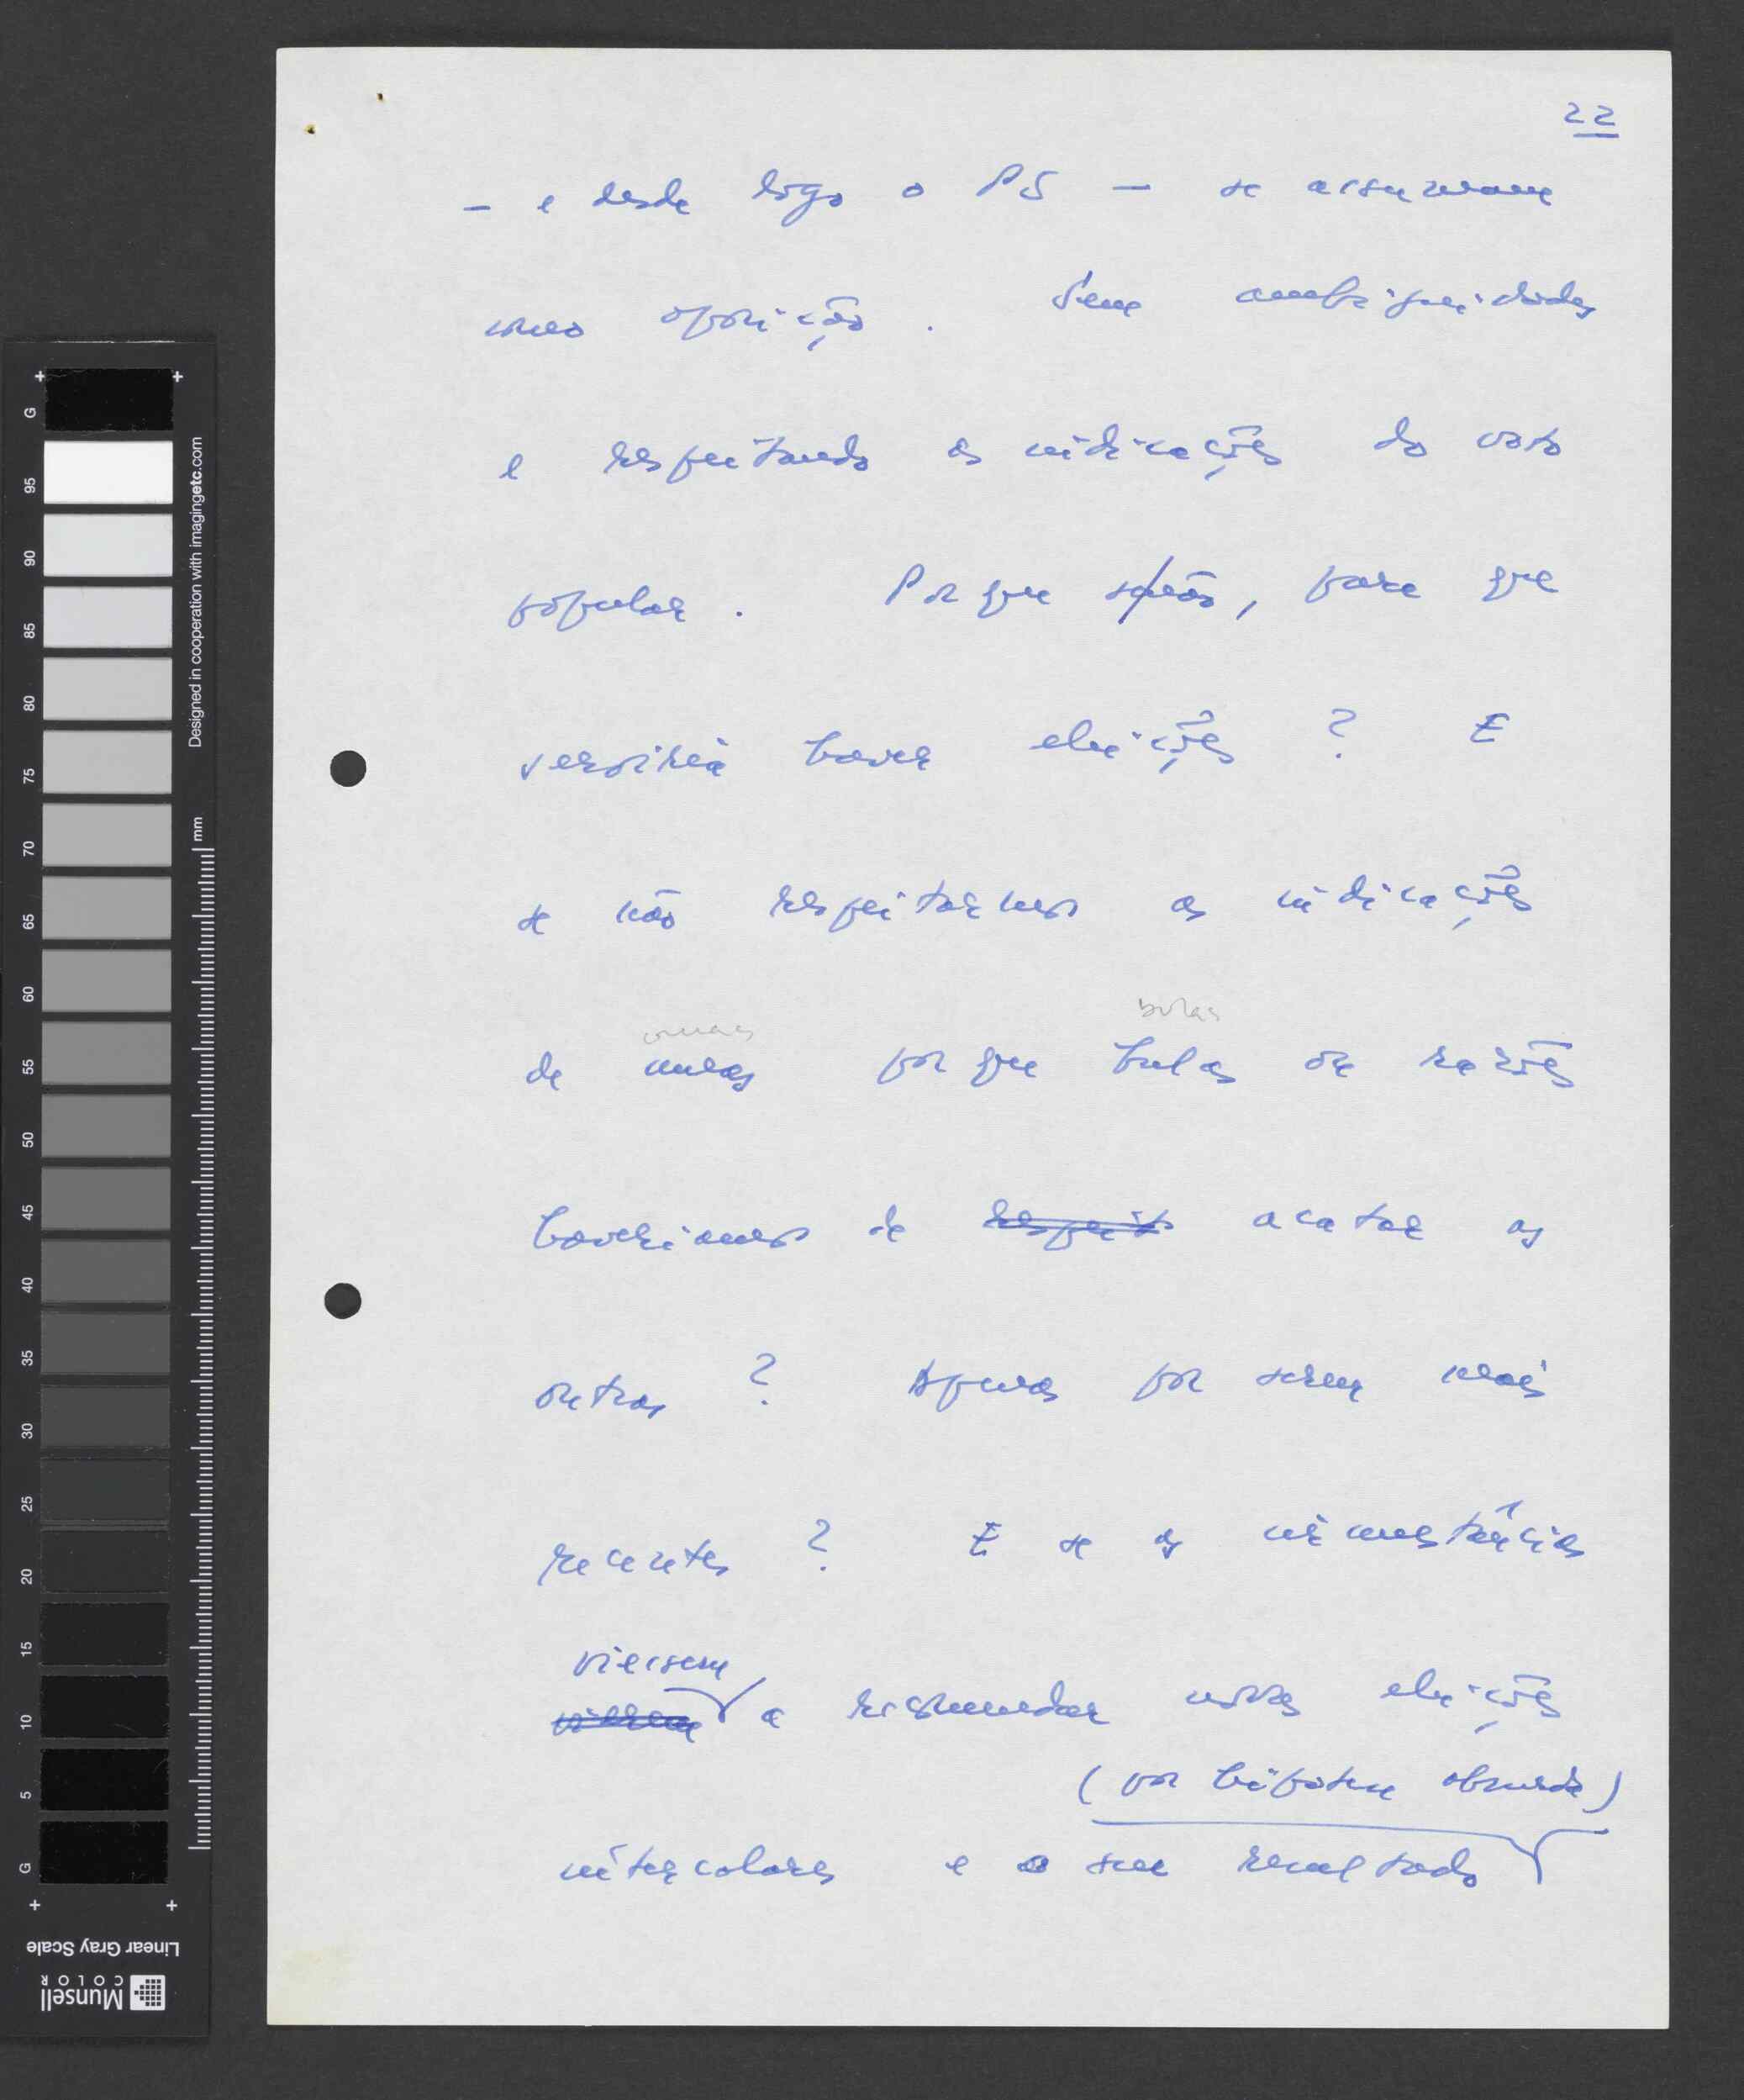 22
– e desde logo o PS – se assumam
como oposição. Sem ambiguidades
e respeitando as indicações do voto
popular. Por que s/não, para que
serviria haver eleições? E
se não respeitarmos as indicações
umas bulas
de umas por que bulas ou razões
haveríamos de respeit acatar as
outras? Apenas por serem mais
recentes? E se as circunstâncias
viessem
vierem a recomendar novas eleições
(por hipótese absurda)
intercalares e o seu resultado
G 95 90 85 80 75 70 65 60 55 50 45 40 35 30 25 20 15 10 5 G
mm
Designed in cooperation with imagingetc.com
Linear Gray Scale
Munsell
COLOR